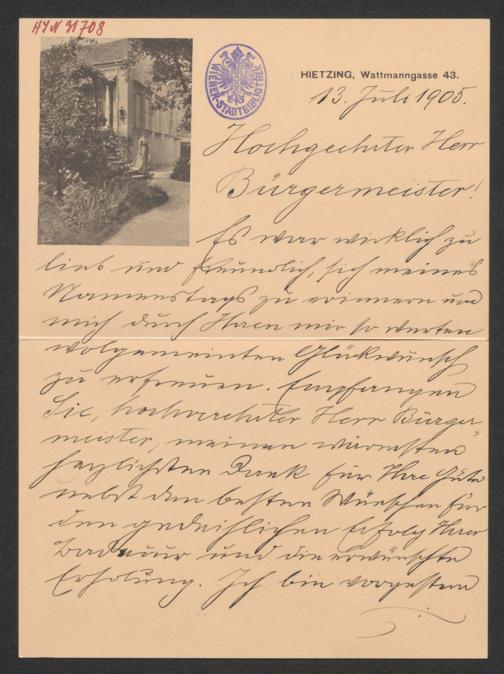 HIN 31708
WIENER-STADTBIBLIOTHEK
HIETZING, Wattmanngasse 43.
13. Juli 1905.
Hochgeehrter Herr
Bürgermeister!
Es war wirklich zu
lieb und freundlich, sich meines
Namenstags zu erinnern und
mich durch Ihren mir so werten
wolgemeinten Glückwunsch
zu erfreuen. Empfangen
Sie, hochverehrter Herr Bürger-
meister, meinen wärmsten
herzlichsten Dank für Ihre Güte
nebst den besten Wünschen für
den gedeihlichen Erfolg Ihrer
Badecur und die erwünschte
Erholung. Ich bin vorgestern